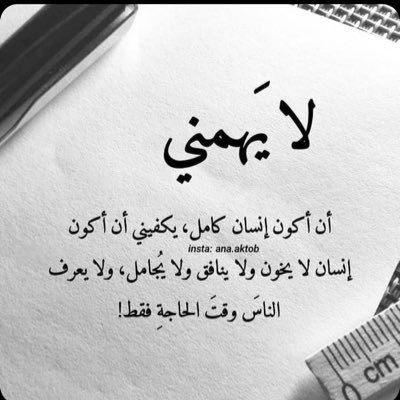 لا يَهمني
أن أكون إنسان كامل، يكفيني أن أكون
insta: ana.aktob
إنسان لا يخون ولا ينافق ولا يُجامل، ولا يعرف
الناسَ وقتَ الحاجةِ فقط!
0
cm